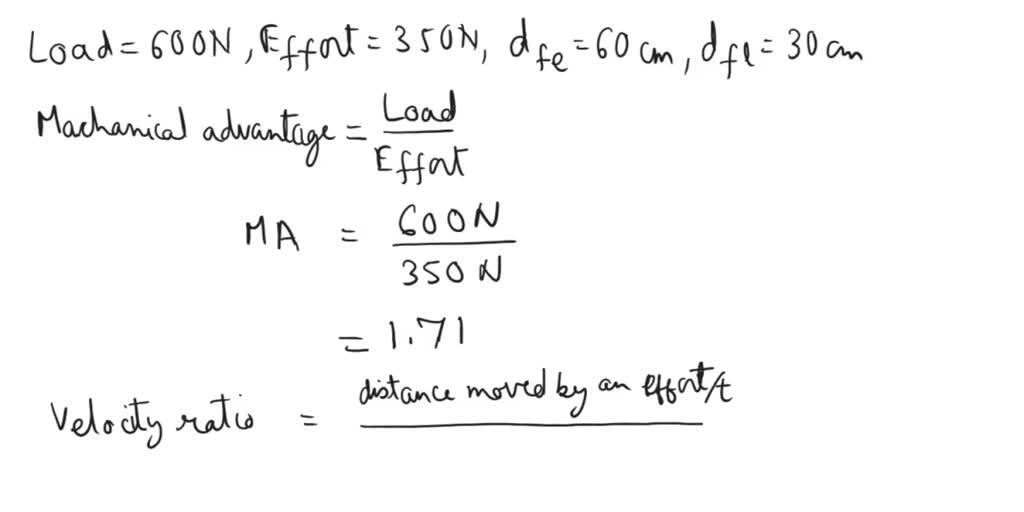 Load = 600N, Effort = 350N, dfe = 60 cm, dfl = 30 cm
Machanical advantage = Load / Effort
MA = 600N / 350 N
= 1.71
Velocity ratio = distance moved by an effort/t